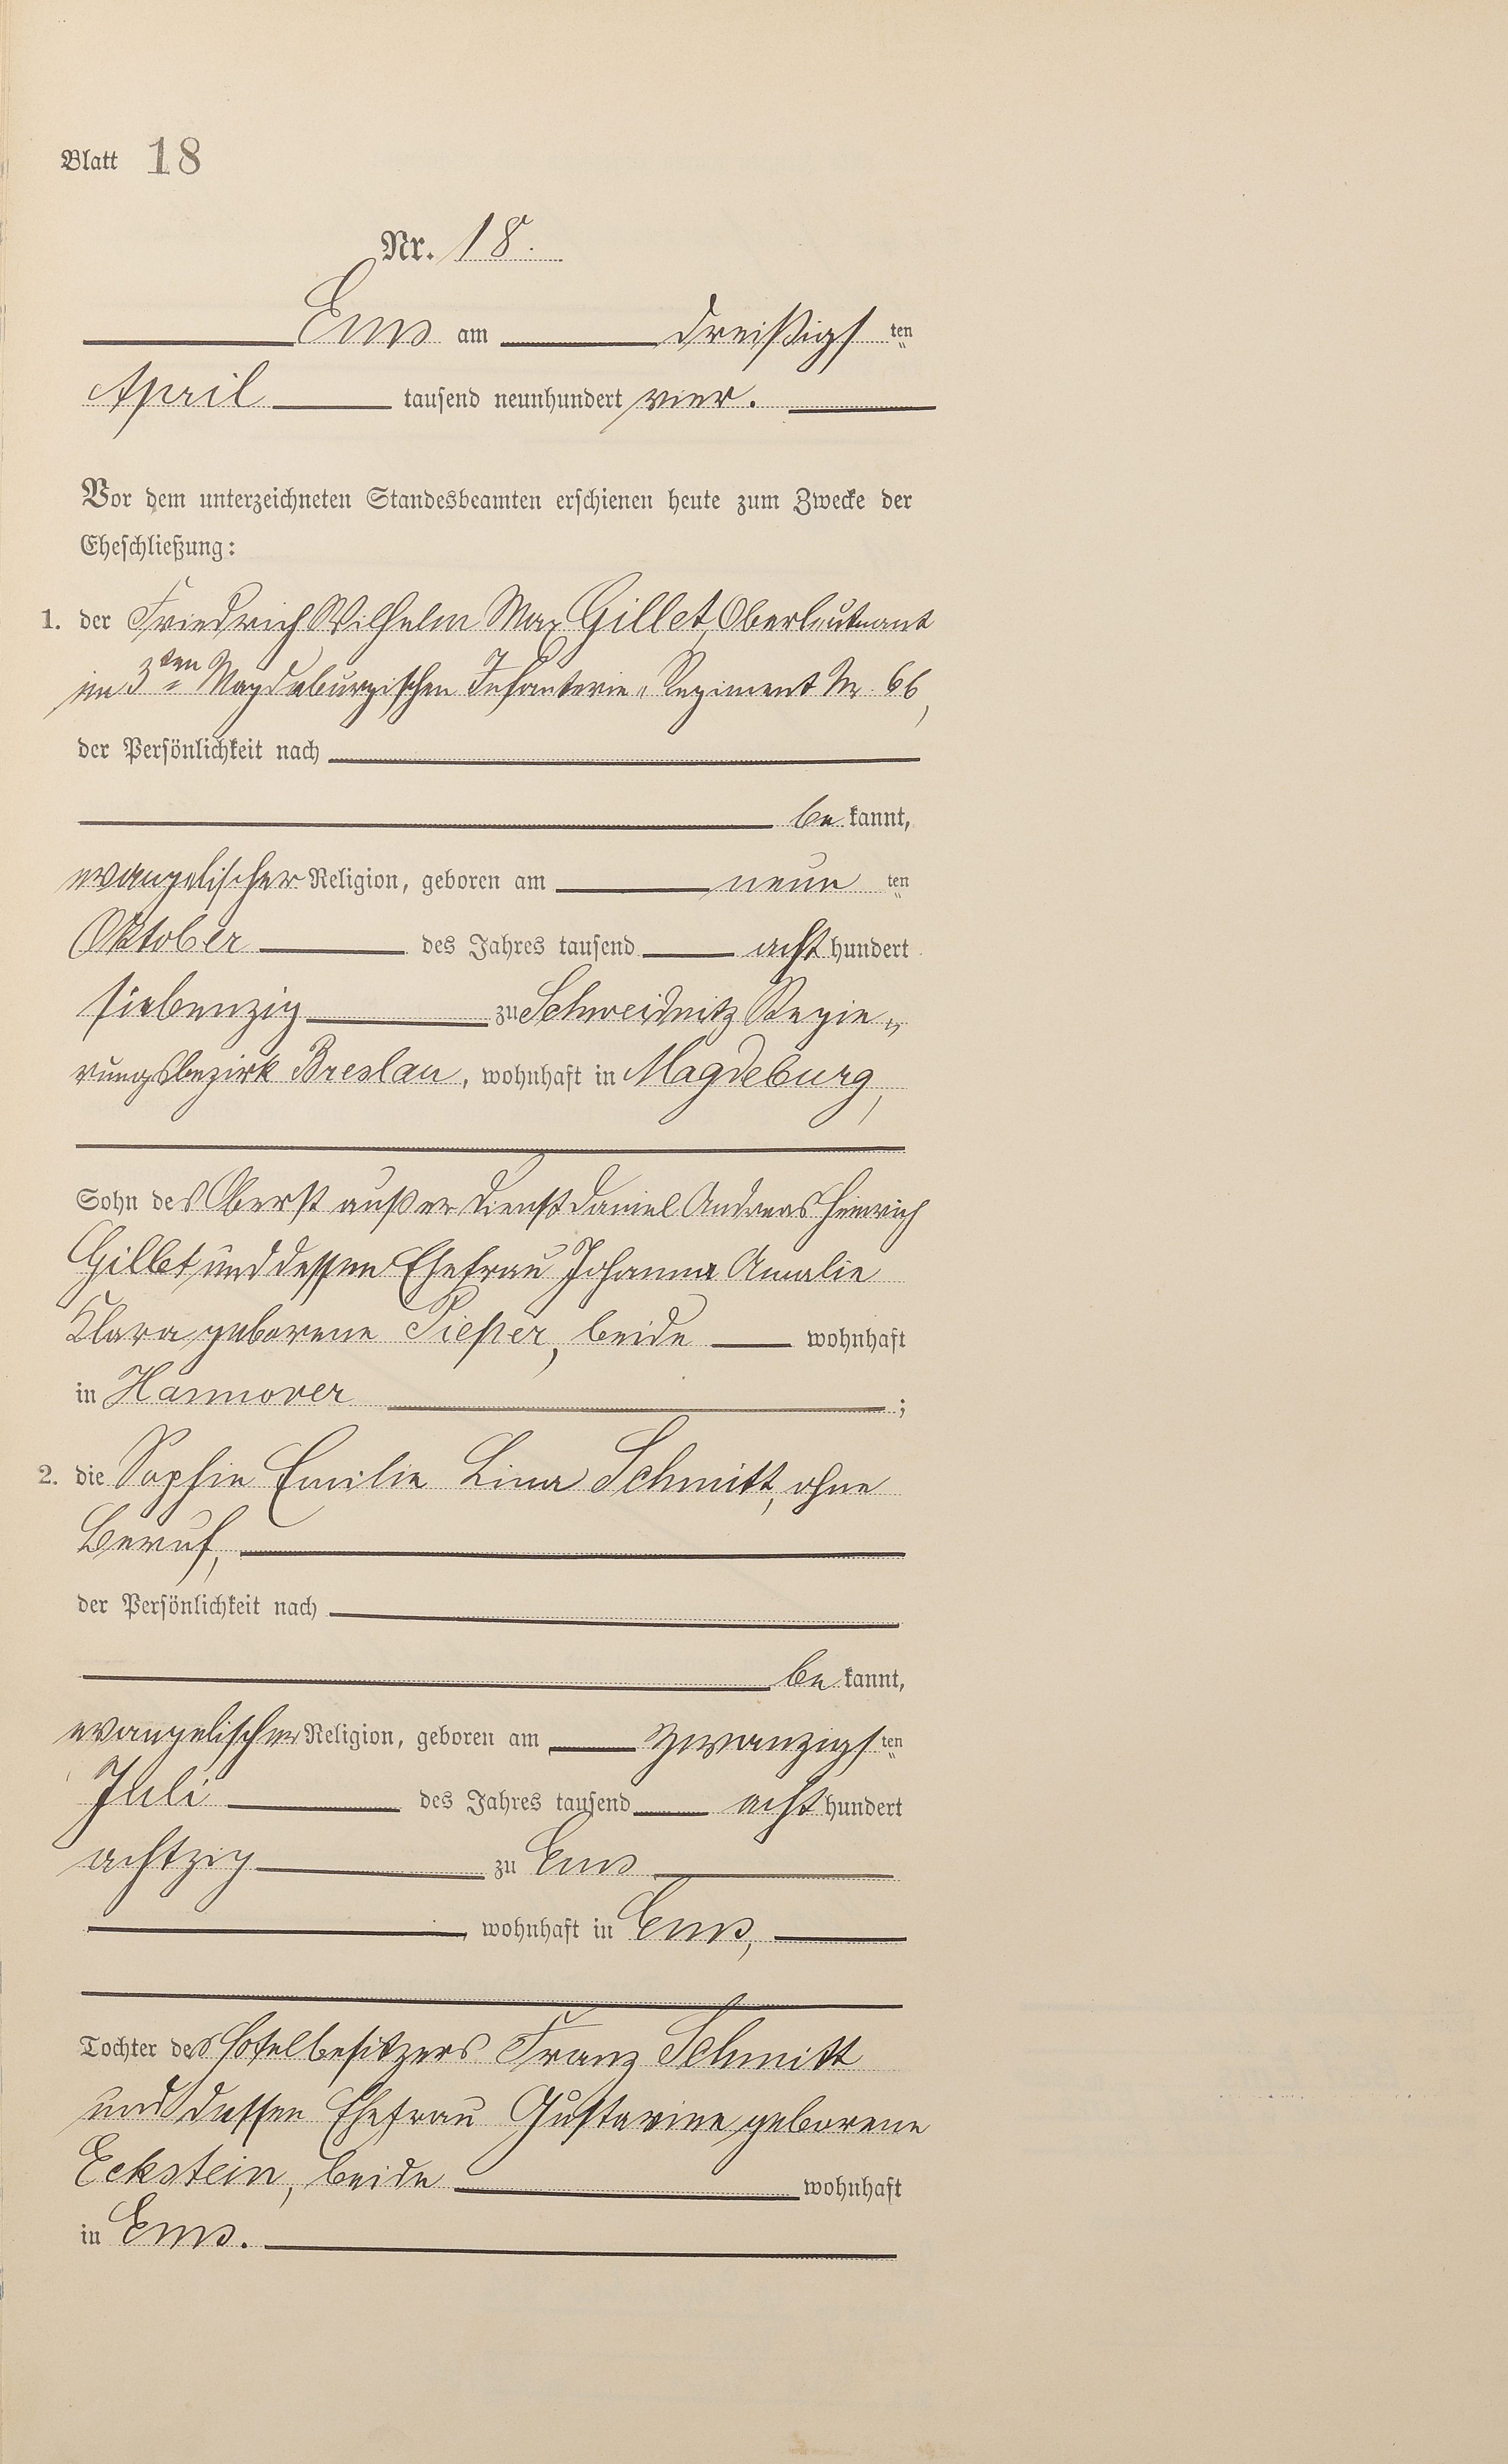 Blatt 18
Nr. 18.
Ems am dreißigs ten
April tausend neunhundert vier.
Vor dem unterzeichneten Standesbeamten erschienen heute zum Zwecke der
Eheschließung:
1. der Friedrich Wilhelm Max Gillet, Oberleutnant
im 3ten Magdeburgischen Infanterie-Regiment Nr. 66,
der Persönlichkeit nach
be kannt,
evangelischer Religion, geboren am neun ten
Oktober des Jahres tausend acht hundert
siebenzig zu Schweidnitz Regie-
rungsbezirk Breslau, wohnhaft in Magdeburg,
Sohn des Oberst außer Dienst Daniel Andreas Heinrich
Gillet und dessen Ehefrau Johanna Amalie
Klara geborene Pieper, beide wohnhaft
in Hannover ;
2. die Sophie Emilie Lina Schmitt, ohne
Beruf,
der Persönlichkeit nach
be kannt,
evangelischer Religion, geboren am zwanzigs ten
Juli des Jahres tausend acht hundert
achtzig zu Ems
, wohnhaft in Ems,
Tochter des Hotelbesitzers Franz Schmitt
und dessen Ehefrau Gustavine geborene
Eckstein, beide wohnhaft
in Ems.